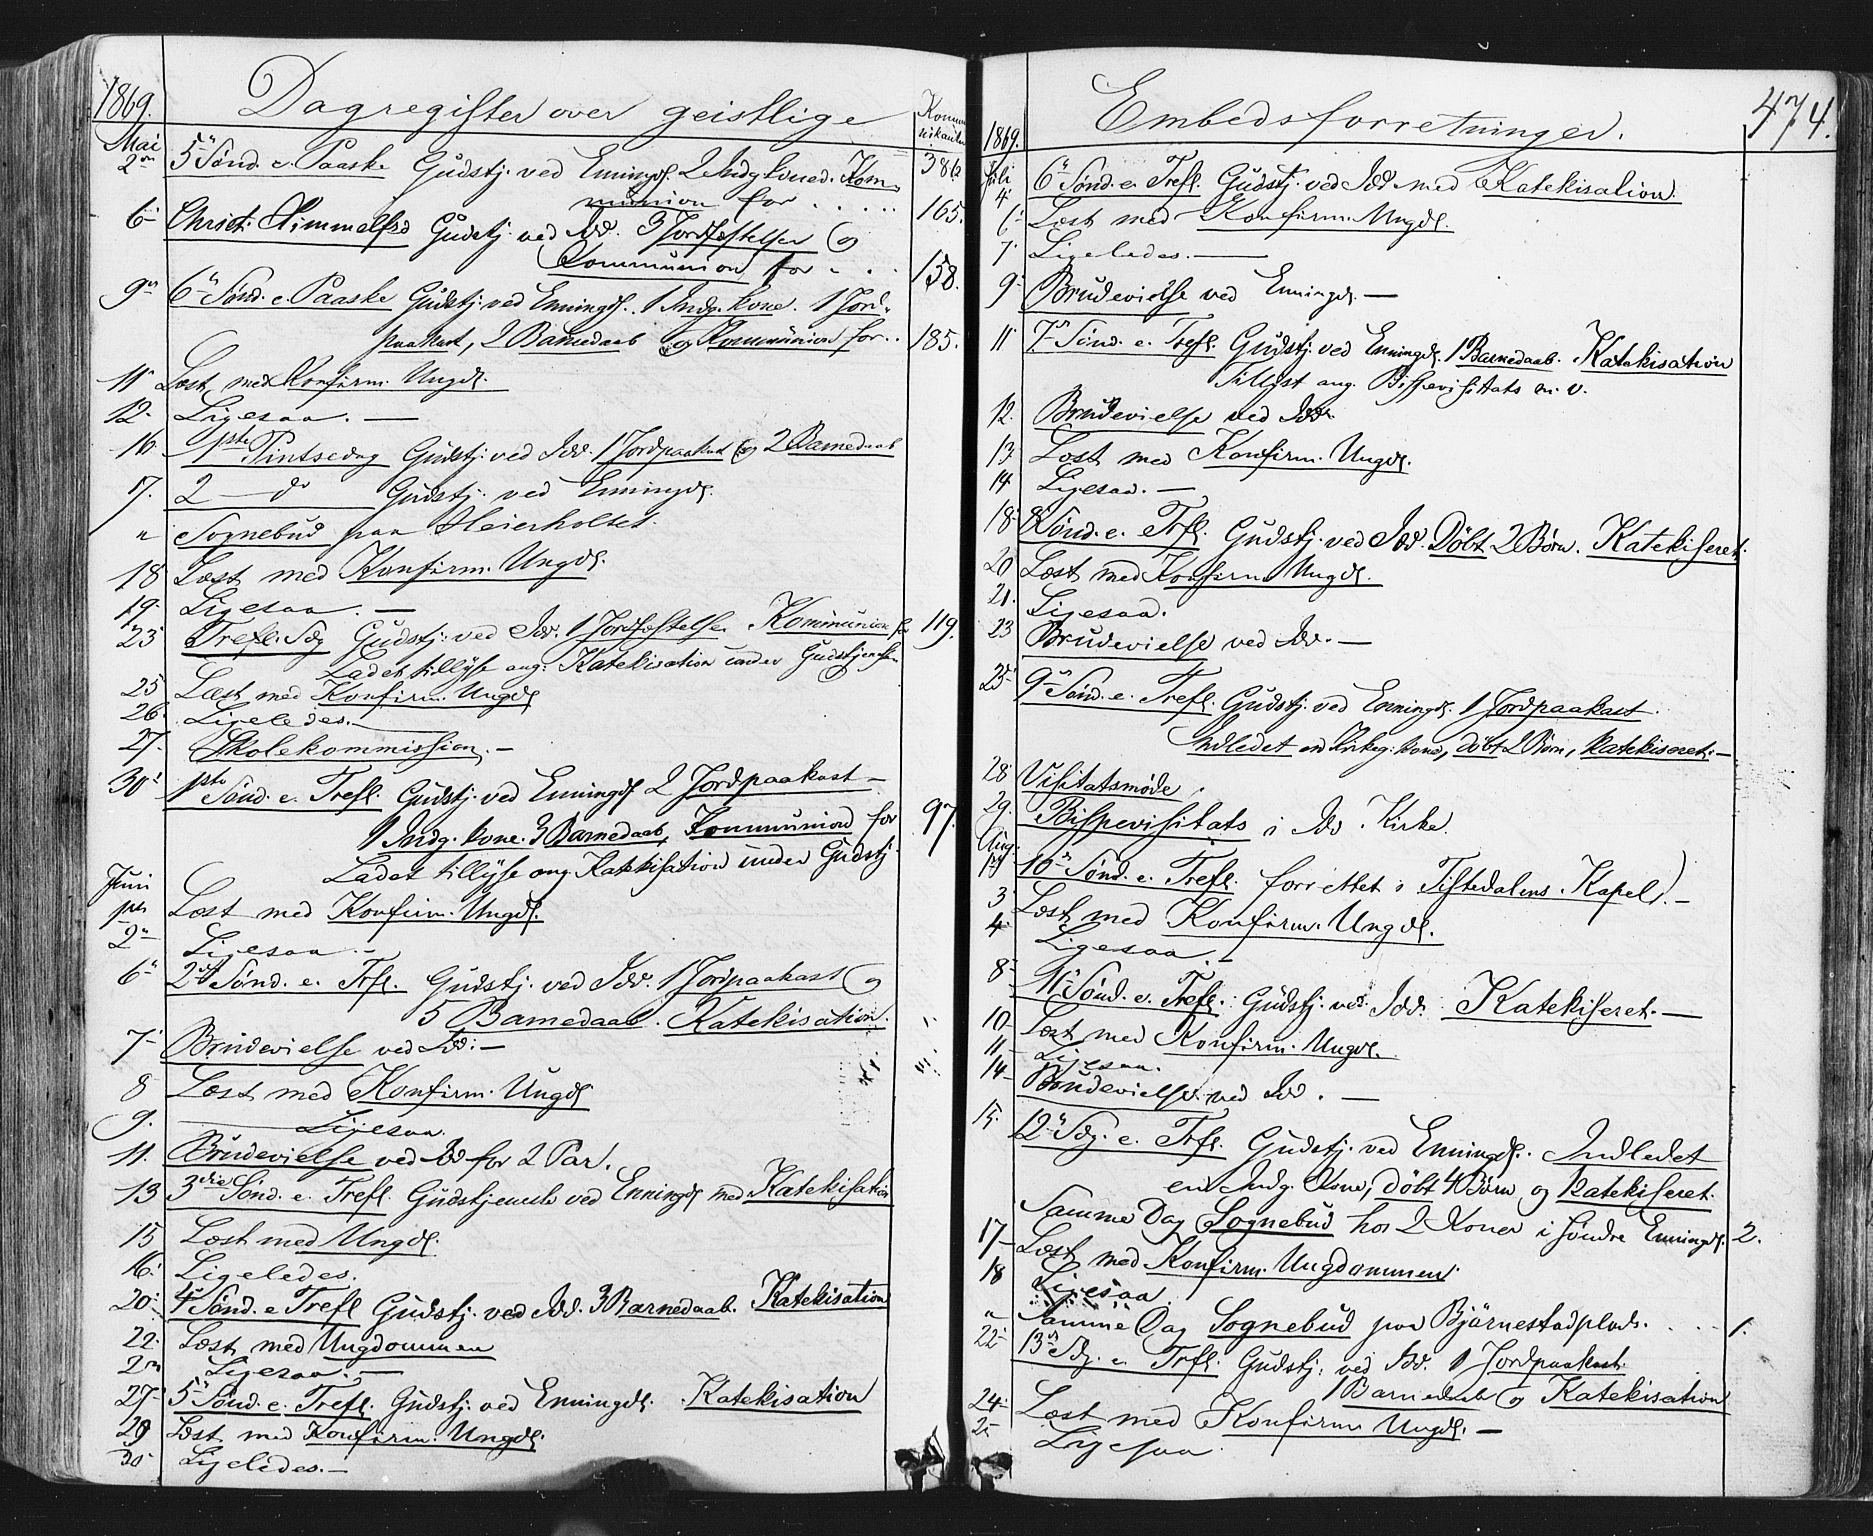 1869.
Dagregister over geistlige
Kommunikanter
Mai
2en 5te Sønd. e. Paaske Gudstj. ved Enningd. 2 Indg koned. Kom-
munion for . . . . . 386
6- Christi Himmelfrd Gudstj. ved Idd. 3 Jordfæstelser og 165.
Kommunion for - . . 158.
9en 6te Sønd. e. Paaske Gudstj. ved Enningd. 1 Indg. kone. 1 Jord-
paakast, 2 Barnedaab og Kommunion for.. 185.
11 Læst med Konfirm. Ungd.
12. Ligesaa. —
16. 1ste Pintsedag Gudstj. ved Idd. 1 Jordpaakast og 2 Barnedaab
17. 2 — do Gudstj. ved Enningd.
" Sognebud paa Heierholtet.
18 Læst med Konfirm. Ungd.
19. Ligesaa. —
23 Trefl. Søg Gudstj. ved Idd. 1 Jordfæstelse Kommunion for 119.
Ladet tillyse ang. Katekisation under Gudstjenesten
25 Læst med Konfirm. Ungd
26. Ligeledes.
27. Skolekommission. —
30. 1ste Sønd. e. Trefl. Gudstj. ved Enningd 2 Jordpaakast —
1 Indg. kone. 3 Barnedaab, Kommunion for 97.
Ladet tillyse ang. Katekisation under Gudstj.
Juni
1ste Læst med Konfirm. Ungd.
2- Ligesaa. —
6- 2d Sønd. e. Trfl. Gudstj. ved Idd. 1 Jordpaakast og
5 Barnedaab. Katekisation.
7- Brudevielse ved Idd. —
8 Læst med Konfirm. Ungd
9. Ligesaa.
11. Brudevielse ved Id for 2 Par.
13 3die Sønd. e. Trefl. Gudstjeneste ved Enningd med Katekisation
15 Læst med Ungd.
16. Ligeledes.
20. 4. Sønd. e Trefl Gudstj. ved Idd. 3 Barnedaab. Katekisation
22. Læst med Ungdommen
Ligesaa. —
27- 5te Sønd. e. Trefl. Gudstj. ved Enningd. Katekisation
29 Læst med Konfirm. Ungd.
30 Ligeledes. —
Embedsforretninger. 474.
1869.
Juli
4 6te Sønd. e. Trefl. Gudstj. ved Idd. med Katekisation.
6- Læst med Konfirm. Ungd.
7. Ligeledes. —
9- Brudevielse ved Enningd. —
11 7- Sønd. e. Trefl. Gudstj. ved Enningd. 1 Barnedaab. Katekisation
Tillyst ang. Bispevisitats m. v.
12. Brudevielse ved Idd.
13 Læst med Konfirm. Ungd.
14 Ligesaa. —
18- 8 Sønd. e. Trfl. Gudstj. ved Idd. Döbt 2 Börn. Katekiseret.
20 Læst med Konfirm Ungd.
21. Ligesaa.
23 Brudevielse ved Idd. —
25- 9- Sønd. e. Trefl. Gudstj. ved Enningd. 1 Jordpaakast.
Indledet en Kirkeg. kone, döbt 2 Börn, katekiseret. —
28 Visitatsmøde.
29. Bispevisitats i Idd. Kirke.
Aug.
1ste 10de Sønd. e. Trefl. forrettet i Tistedalens Kapel). —
3 Læst med Konfirm. Ungd.
4- Ligesaa. —
8- 11- Sønd. e. Trefl. Gudstj. ved Idd. Katekiseret. —
10- Læst med Konfirm. Ungd.
11- Ligesaa.
14- Brudevielse ved Idd. —
15. 12- Sdg. e. Trfl. Gudstj. ved Enningd. Indledet
en Indg. Kone, döbt 4 Börn og Katekiseret.
Samme Dag Sognebud hos 2 Koner i søndre Enningd. 2.
17- Læst med Konfirm. Ungdommen
18 Ligesaa.
" Samme Dag Sognebud paa Bjørnestadplads. . . . 1.
22- 13- Sdg. e. Trfl. Gudstj. ved Idd. 1 Jordpaakast.
1 Barnedaab og Katekisation
24- Læst med Konfirm Ungd. —
25 Ligesaa.